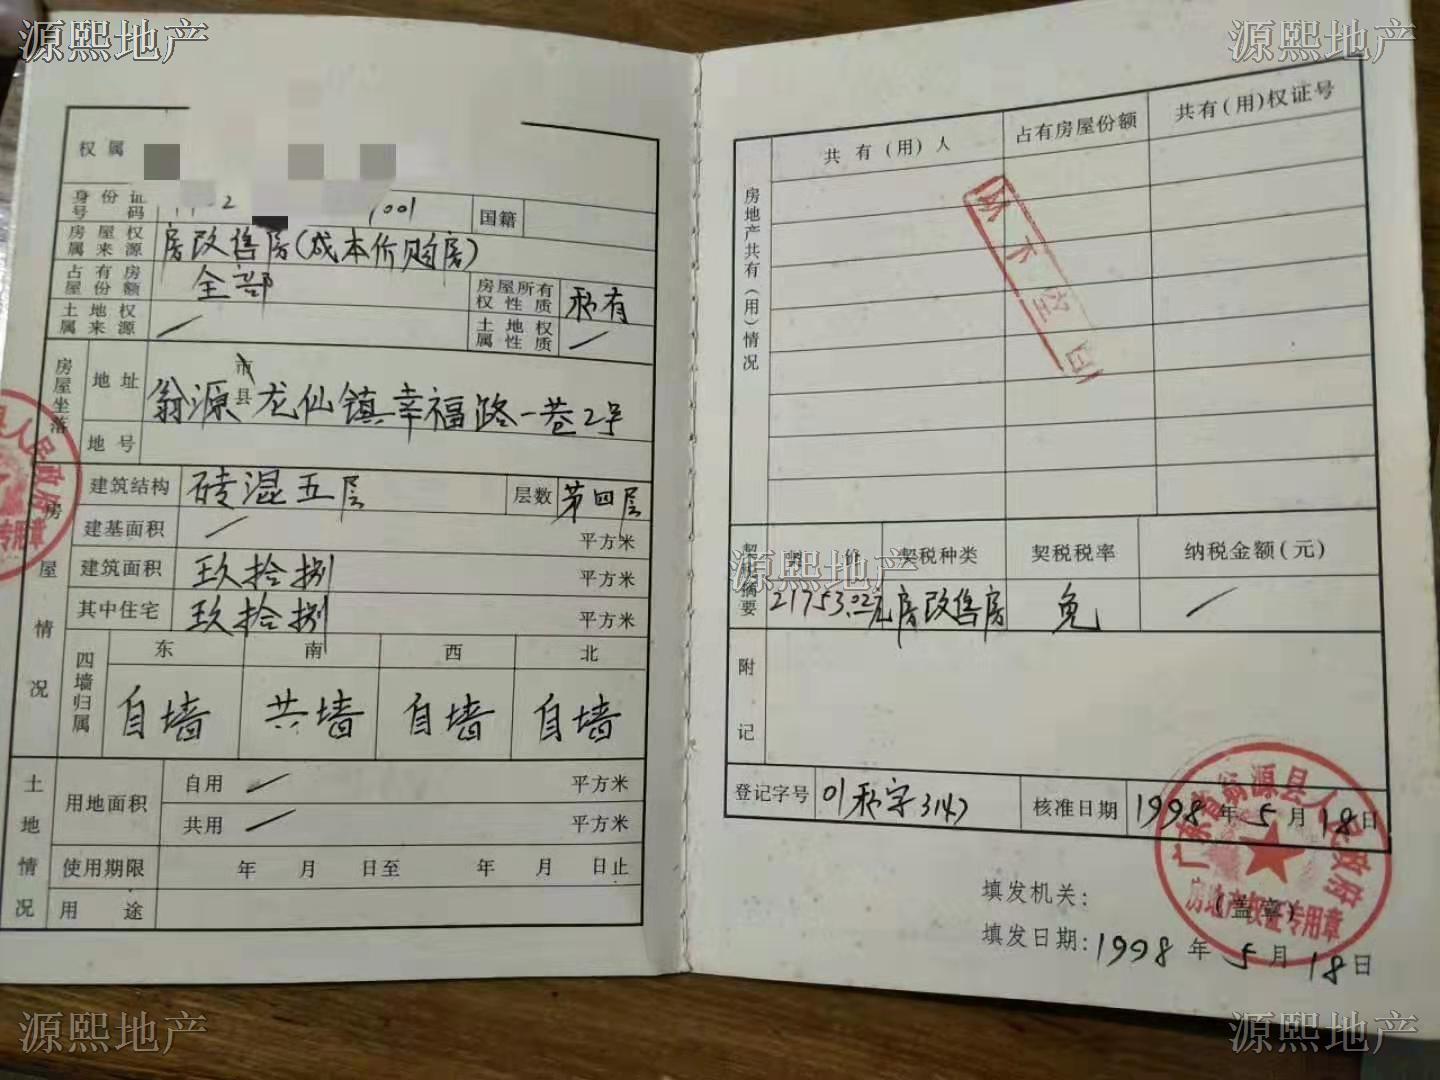 源熙地产
源熙地产
权属
身份证号码 2 1001 国籍
房屋权属来源 房改售房(成本价购房)
占有房屋份额 全部 房屋所有权性质 私有
土地权属来源 / 土地权属性质 /
房屋坐落 地址 翁源市县龙仙镇幸福路一巷2号
地号
房屋情况 建筑结构 砖混五层 层数 第四层
建基面积 / 平方米
建筑面积 玖拾捌 平方米
其中住宅 玖拾捌 平方米
四墙归属 东 南 西 北
自墙 共墙 自墙 自墙
土地情况 用地面积 自用 / 平方米
共用 / 平方米
使用期限 年 月 日至 年 月 日止
用途
县人民政府
专用章
房地产共有(用)情况 共有(用)人 占有房屋份额 共有(用)权证号
以下空白
契税摘要 契价 契税种类 契税税率 纳税金额(元)
21753.02元 房改售房 免 /
源熙地产
附记
登记字号 01私字3147 核准日期 1998年5月18日
填发机关: (盖章)
填发日期: 1998年5月18日
广东省翁源县人民政府
房地产权证专用章
源熙地产
源熙地产